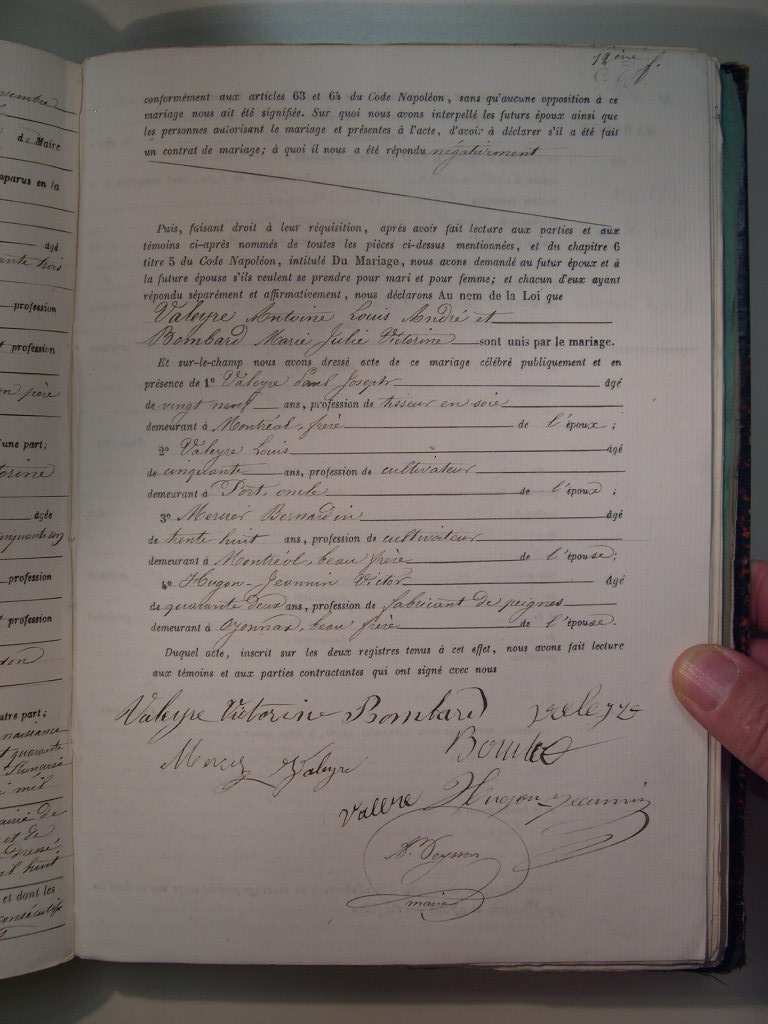 ovembre
de Maire
mparus en la
âgé
ante trois
profession
profession
on père
d'une part;
torine
âgée
profession
profession
autre part;
naissance
quarante
mil
mairie de
et de
et dont les
12ème f.
conformément aux articles 63 et 64 du Code Napoléon, sans qu'aucune opposition à ce
mariage nous ait été signifiée. Sur quoi nous avons interpellé les futurs époux ainsi que
les personnes autorisant le mariage et présentes à l'acte, d'avoir à déclarer s'il a été fait
un contrat de mariage; à quoi il nous a été répondu négativement
Puis, faisant droit à leur réquisition, après avoir fait lecture aux parties et aux
témoins ci-après nommés de toutes les pièces ci-dessus mentionnées, et du chapitre 6
titre 5 du Code Napoléon, intitulé Du Mariage, nous avons demandé au futur époux et à
la future épouse s'ils veulent se prendre pour mari et pour femme; et chacun d'eux ayant
répondu séparément et affirmativement, nous déclarons Au nom de la Loi que
Valeyre Antoine Louis André et
Bombard Marie Julie Victorine sont unis par le mariage.
Et sur-le-champ nous avons dressé acte de ce mariage célébré publiquement et en
présence de 1º Valeyre Paul Joseph âgé
de vingt neuf ans, profession de tisseur en soie
demeurant à Montréal, frère de l'époux;
2º Valeyre Louis âgé
de cinquante ans, profession de cultivateur
demeurant à Port, oncle de l'époux;
3º Mercier Bernardin âgé
de trente huit ans, profession de cultivateur
demeurant à Montréal, beau frère de l'épouse;
4º Hugon-Jeannin Victor âgé
de quarante deux ans, profession de fabricant de peignes
demeurant à Oyonnax, beau frère de l'épouse.
Duquel acte, inscrit sur les deux registres tenus à cet effet, nous avons fait lecture
aux témoins et aux parties contractantes qui ont signé avec nous
Valeyre Victorine Bombard
Valeyre
Hugon-Jeannin
maire